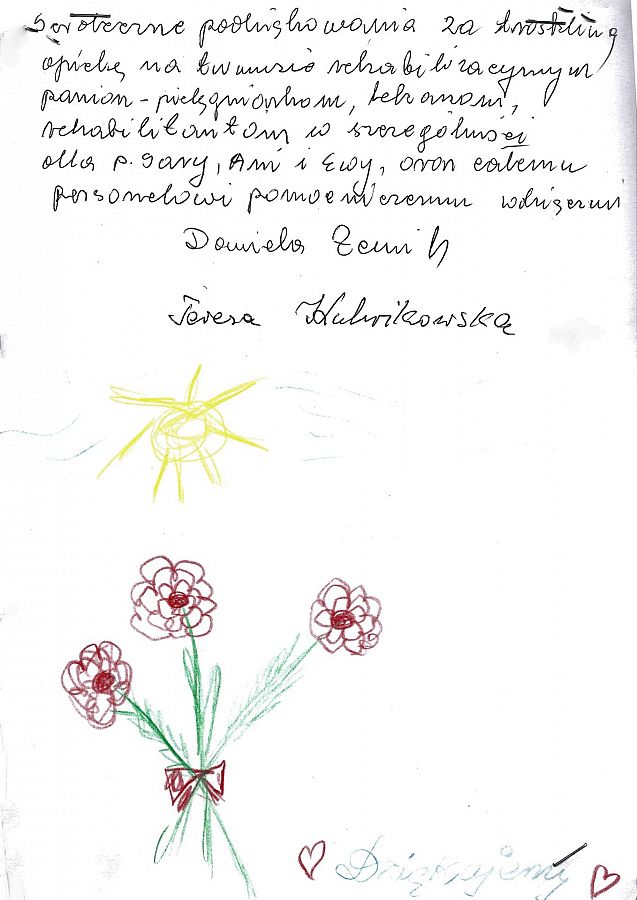 Serdeczne podziękowania za troskliwą
opiekę na turnusie rehabilitacyjnym
paniom - pielęgniarkom, lekarzom,
rehabilitantom w szczególności
dla p. Sary, Ani i Ewy, oraz całemu
personelowi pomocniczemu wdzięczni
Daniela
Teresa
Dziękujemy